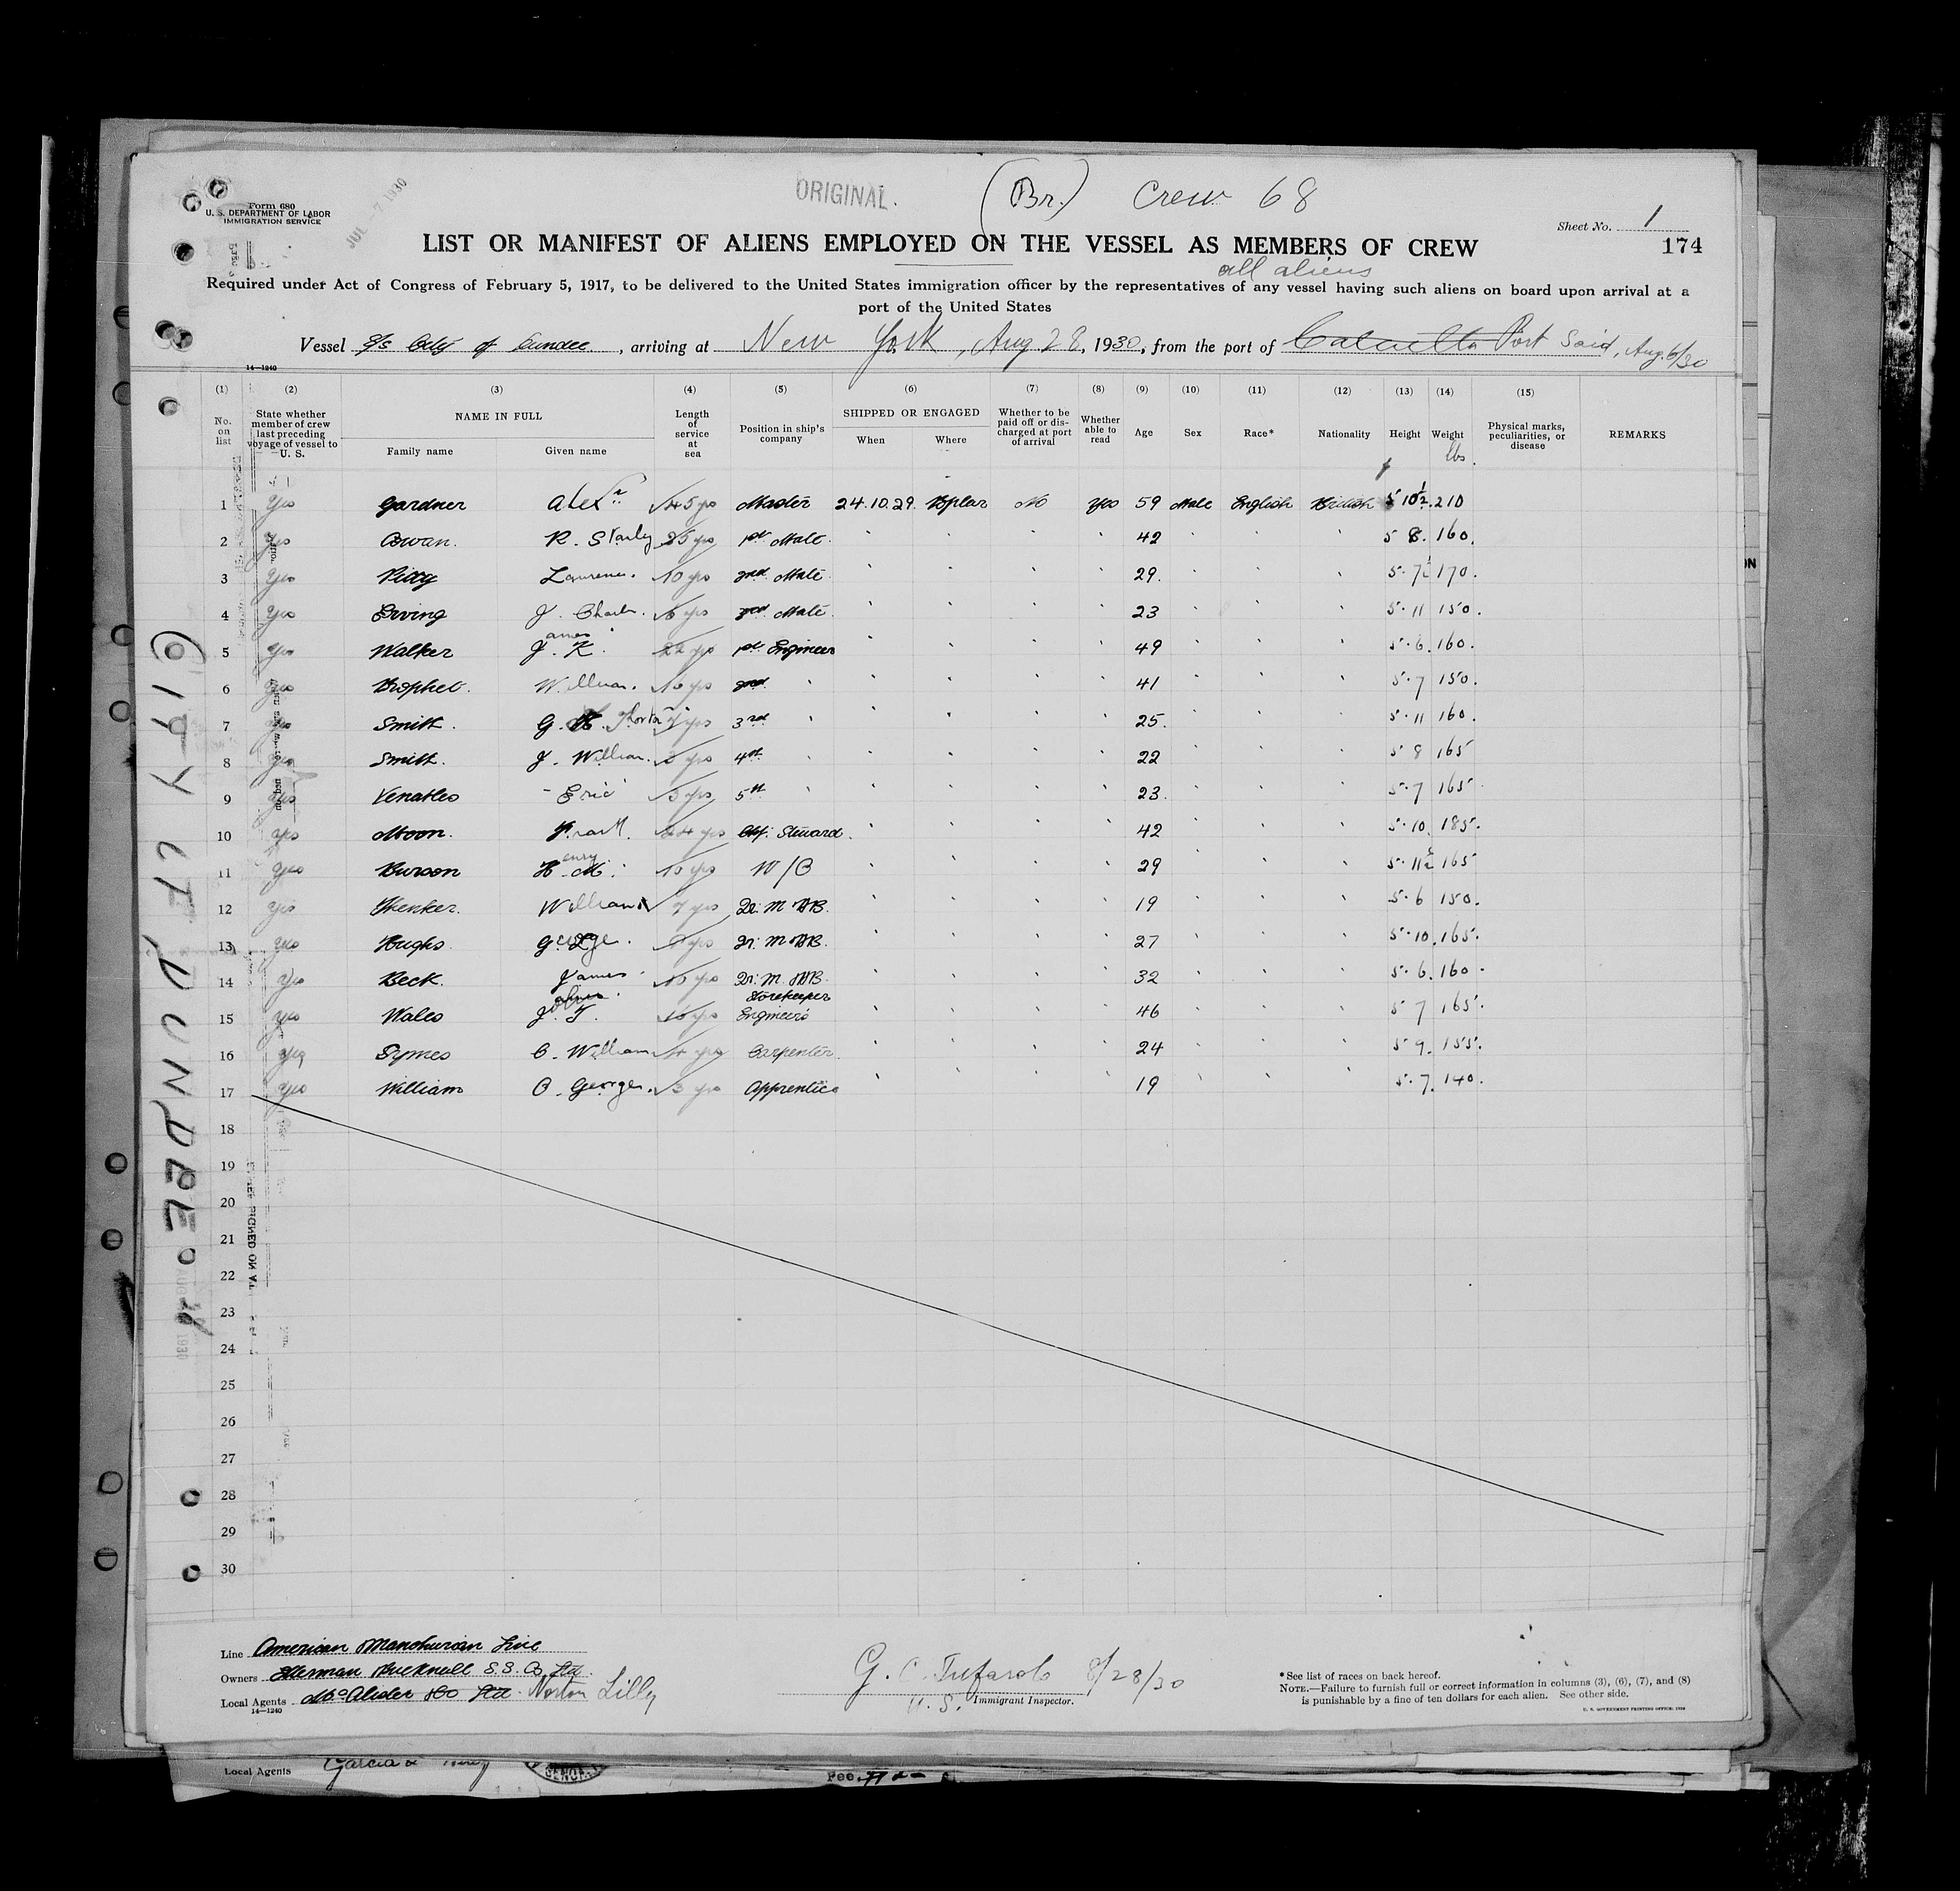 ORIGINAL.
(Br.) Crew 68
Form 680
U. S. DEPARTMENT OF LABOR
IMMIGRATION SERVICE
JUL - 7 1930
Sheet No. 1
174
LIST OR MANIFEST OF ALIENS EMPLOYED ON THE VESSEL AS MEMBERS OF CREW
all aliens
Required under Act of Congress of February 5, 1917, to be delivered to the United States immigration officer by the representatives of any vessel having such aliens on board upon arrival at a
port of the United States
Vessel S/s City of Dundee, arriving at New York, Aug 28, 1930, from the port of Calcutta Port Said, Aug. 6/30
14—1240
(1) (2) (3) (4) (5) (6) (7) (8) (9) (10) (11) (12) (13) (14) (15)
No. on list
State whether member of crew last preceding voyage of vessel to U. S.
NAME IN FULL
Family name
Given name
Length of service at sea
Position in ship's company
SHIPPED OR ENGAGED
When
Where
Whether to be paid off or discharged at port of arrival
Whether able to read
Age
Sex
Race*
Nationality
Height
Weight lbs.
Physical marks, peculiarities, or disease
REMARKS
1 Yes Gardner Alexr 45 yrs Master 24.10.29. Poplar No Yes 59 Male English British 5 10½ 210
2 Yes Cowan. R. Stanly 25 yrs 1st Mate. 42 5 8. 160.
3 Yes Lawrence. 10 yrs 2nd Mate 29. 5. 7½ 170.
4 Yes Erving J. Charles. 6 yrs 3rd Mate 23 5. 11 150.
5 Yes Walker James K. 22 yrs 1st Engineer 49 5. 6. 160.
6 Yes Prophet. William. 16 yrs 2nd 41 5. 7 150.
7 Yes Smith. G. yrs 3rd 25. 5. 11 160.
8 Yes Smith. J. William. yrs 4th 22 5 8 165
9 Yes Venables Eric 3 yrs 5th 23. 5. 7 165
10 Yes Moon. Frank. 24 yrs Chf. Steward. 42 5. 10. 185.
11 Yes Burson Henry M. 10 yrs W/O 29 5. 11½ 165
12 Yes William 7 yrs Qr. M &AB. 19 5. 6 150.
13 Yes Hughs. George. yrs Qr. M &AB. 27 5. 10. 165.
14 Yes Beck. James. 10 yrs Qr. M. &AB. 32 5. 6. 160.
15 Yes Wales J. T. 16 yrs Storekeeper Engineers 46 5 7 165.
16 Yes Symes C. William 4 yrs Carpenter. 24 5. 9. 155.
17 Yes William O. George. 3 yrs Apprentice 19 5. 7. 140.
18
19
20
21
22
23
24
25
26
27
28
29
30
CITY OF DUNDEE
Line American Manchurian Line
Owners Ellerman Bucknell S.S. Co Ltd.
Local Agents Norton Lilly
14—1240
8/28/30
U. S. Immigrant Inspector.
*See list of races on back hereof.
NOTE.—Failure to furnish full or correct information in columns (3), (6), (7), and (8)
is punishable by a fine of ten dollars for each alien. See other side.
U. S. GOVERNMENT PRINTING OFFICE: 1928
Local Agents Garcia &
Fee